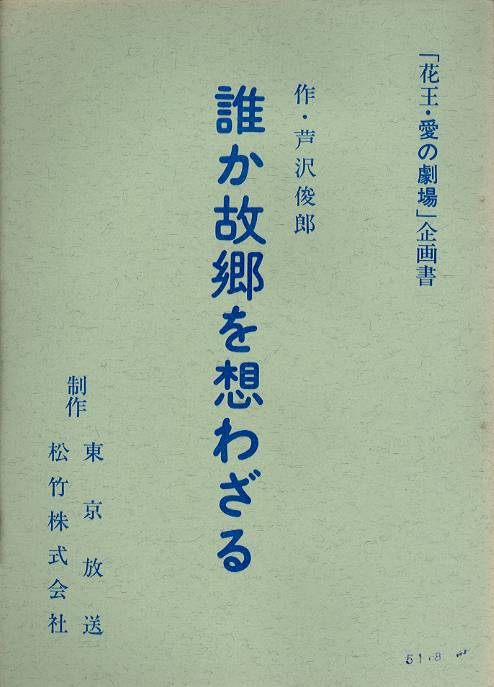 「花王・愛の劇場」企画書
作・芦沢俊郎
誰か故郷を想わざる
制作
東京放送
松竹株式会社
51.8